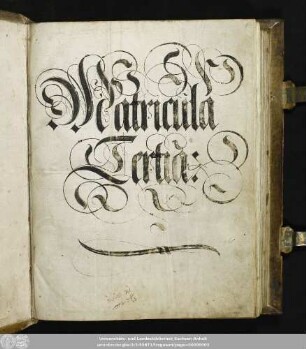 Matricula
Tertia:
Universitäts- und Landesbibliothek Sachsen-Anhalt